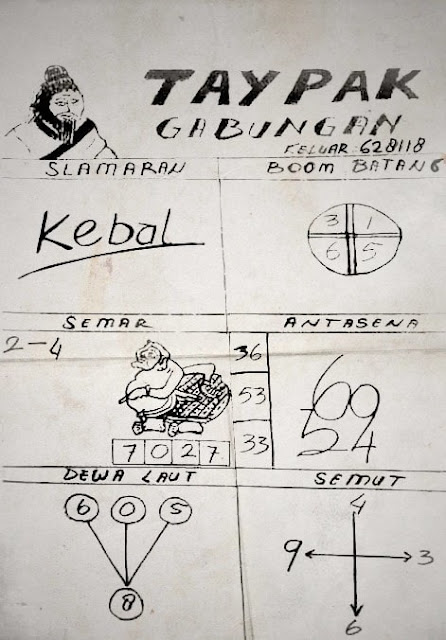 TAYPAK
GABUNGAN
KELUAR : 628118
SLAMARAN
BOOM BATANG
Kebal
3 1
6 5
SEMAR
ANTASENA
2-4
36
53
33
7 0 2 7
69
54
DEWA LAUT
SEMUT
6 0 5
8
4
9 3
6